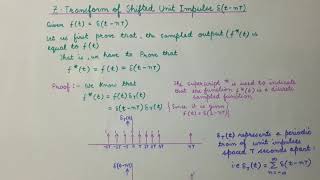 Z-Transform of Shifted Unit Impulse δ(t-nT)
Given f(t) = δ(t-nT)
Let us first prove that, the sampled output (f*(t) is
equal to f(t)
That is, we have to Prove that
f*(t) = f(t) = δ(t-nT)
Proof:- We know that
f*(t) = f(t) δT(t)
= δ(t-nT) δT(t) {Since it is given
f(t) = δ(t-nT)}
The superscript * is used to indicate
that the function f*(t) is a discrete
sampled function
δT(t)
δT(t) represents a periodic
train of unit impulses
spaced T seconds apart.
i.e δT(t) = Σ δ(t-nT)
n=-∞
δ(t-nT)